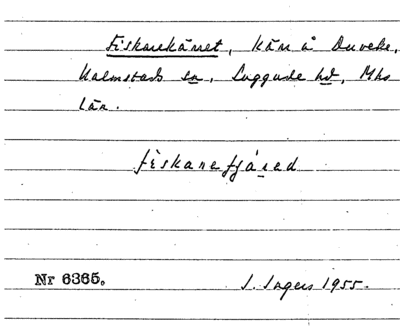 Fiskarekärret, Kärr å Duveke,
Halmstads sn, Luggude hd, Mhs
län.
fiskarefjäred
Nr 6365.
I. Ingers 1955.